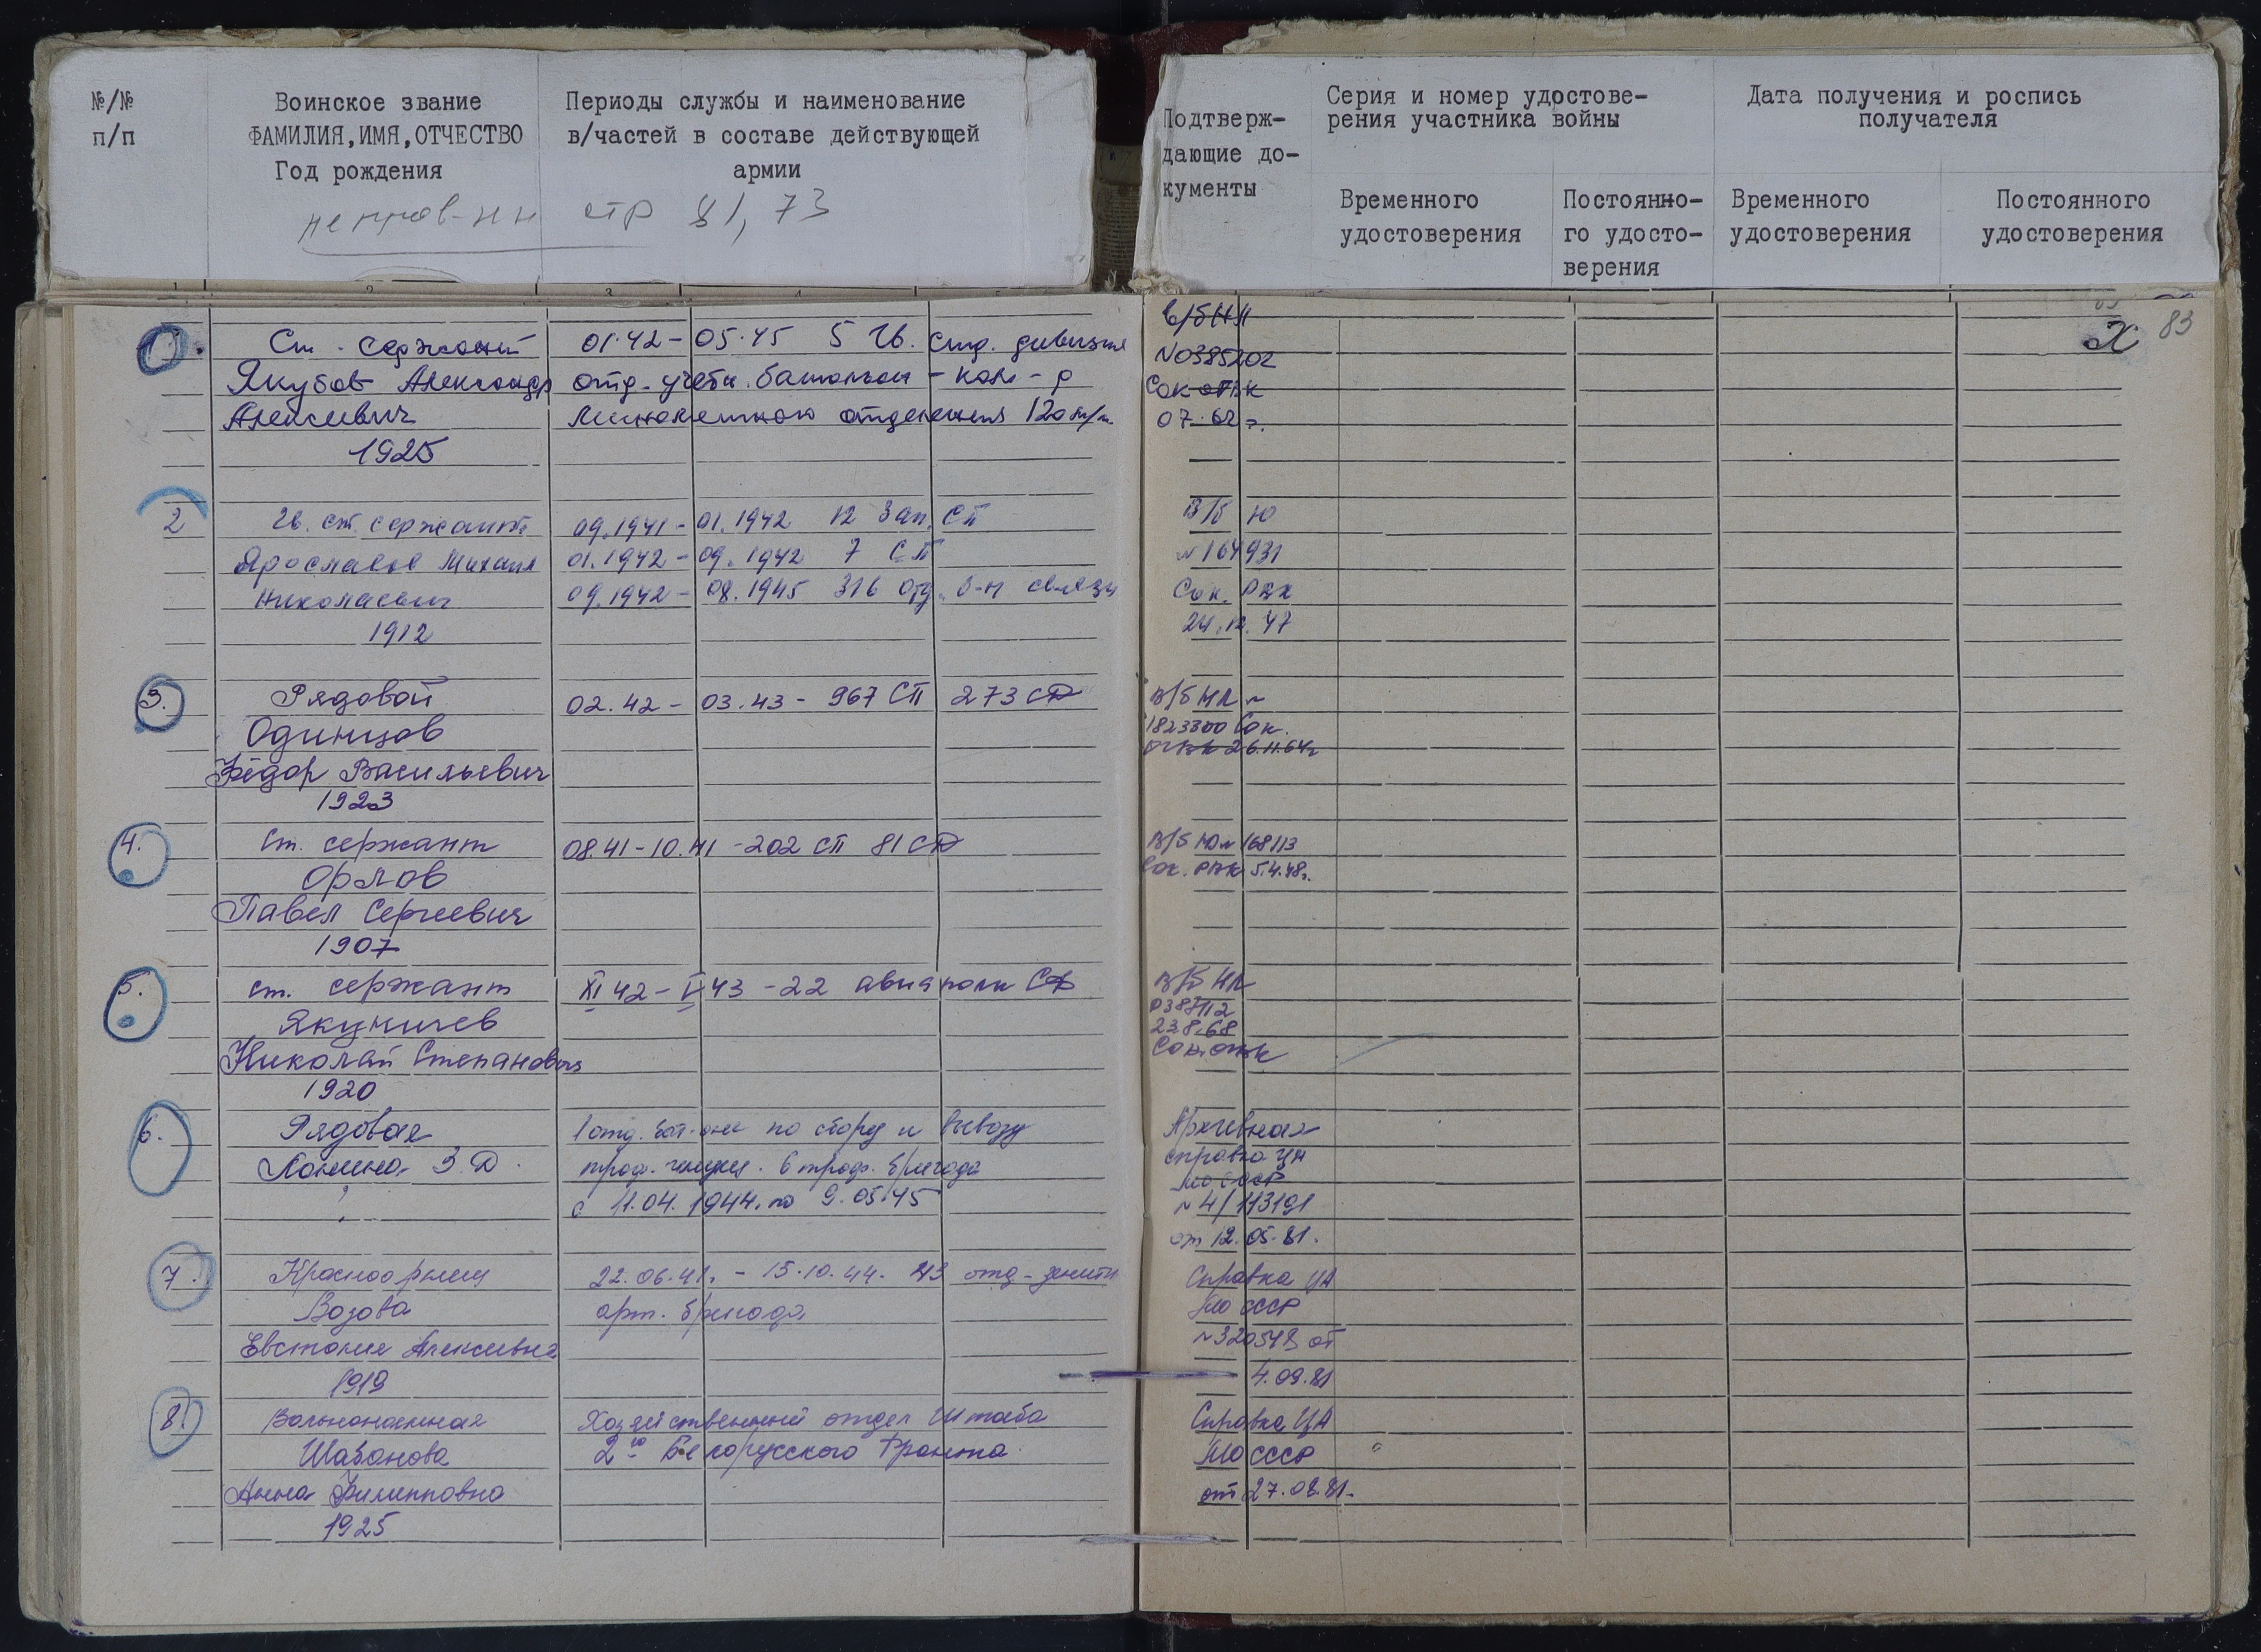 №/№
п/п
Воинское звание
ФАМИЛИЯ,ИМЯ,ОТЧЕСТВО
Год рождения
Периоды службы и наименование
в/частей в составе действующей
армии
стр 81, 73
Подтверж-
дающие до-
кументы
Серия и номер удостове-
рения участника войны
Временного
удостоверения
Постоянно-
го удосто-
верения
Дата получения и роспись
получателя
Временного
удостоверения
Постоянного
удостоверения
83
1.
Ст. сержант
Якубов Александр
Алексеевич
1925
01.42 - 05.45 5 Гв. стр. дивизия
отд. учебн. батальон - ком-р
минометного отделения 120 м/м.
в/б НЛ
№0385202
Сок ОГВК
07.62 г.
2
Гв. ст. сержант
Ярославов Михаил
Николаевич
1912
09.1941 - 01.1942 12 Зап. СП
01.1942 - 09.1942 7 СП
09.1942 - 08.1945 316 Отд. б-н связи
В/б Ю
№164931
Сок. РВК
24.12.47
3.
Рядовой
Одинцов
Фёдор Васильевич
1923
02.42 - 03.43 - 967 СП 273 СД
В/б НЛ №
1823300 Сок.
ОГВК 26.11.64г
4.
Ст. сержант
Орлов
Павел Сергеевич
1907
08.41 - 10.41 - 202 СП 81 СД
В/б Ю № 168113
Сок. РВК 5.4.48г.
5.
ст. сержант
Якуничев
Николай Степанович
1920
XI 42 - V 43 - 22 авиаполк СФ
В/б НЛ
0387112
23.8.68
Сок. ОГВК
6.
Рядовая
Лонина З.Д.
1 отд. бат-он по сбору и вывозу
6 троф. бригада
с 11.04.1944. по 9.05.45
Архивная
справка ЦА
МО СССР
№ 4/113191
от 12.05.81.
7.
Красноармеец
Возова
Евстолия Алексеевна
1919
22.06.41. - 15.10.44. 43 отд. зенитн
арт. бригада
Справка ЦА
МО СССР
№320548 от
4.09.81
8.
Вольнонаемная
Шабанова
Анна Филипповна
1925
Хозяйственный отдел Штаба
2го Белорусского Фронта
Справка ЦА
МО СССР
от 27.08.81.